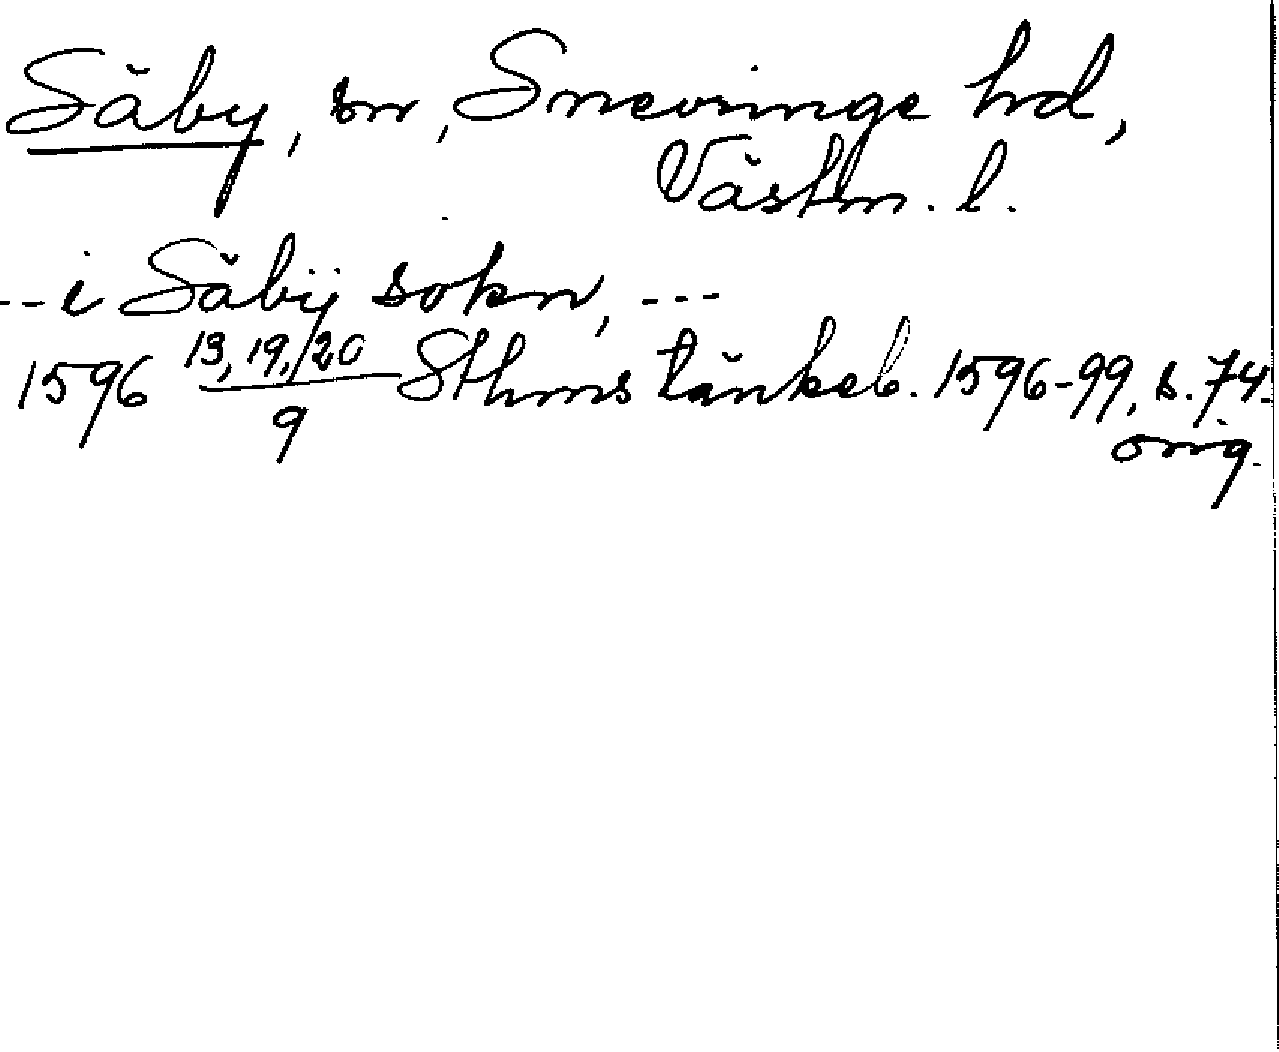 Säby, sn, Snevringe hd,
Västm. l.
--- i Säbÿ sokn, ---
1596 13, 19,/20/9 Sthms tänkeb. 1596-99, s. 74.
orig.